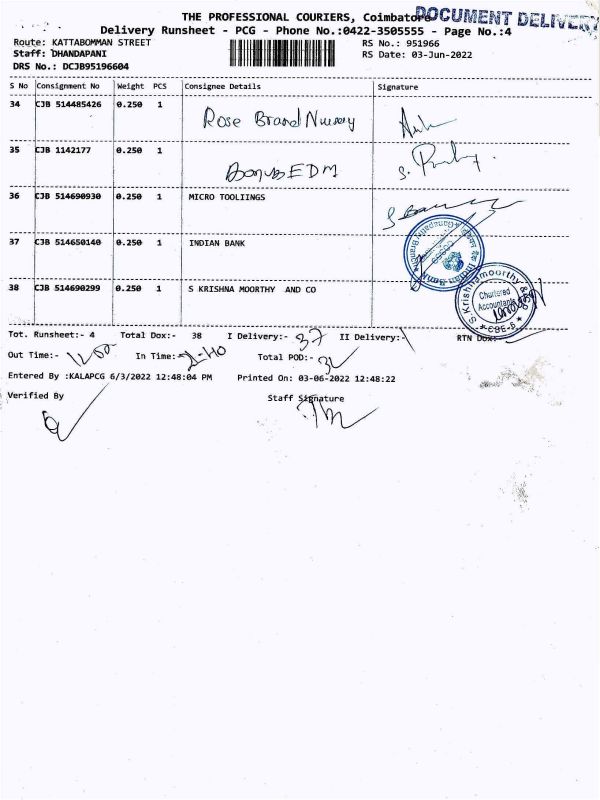 THE PROFESSIONAL COURIERS, Coimbatore
DOCUMENT DELIVERY
Delivery Runsheet - PCG - Phone No.:0422-3505555 - Page No.:4
Route: KATTABOMMAN STREET RS No.: 951966
Staff: DHANDAPANI RS Date: 03-Jun-2022
DRS No.: DCJB95196604
S No Consignment No Weight PCS Consignee Details Signature
34 CJB 514485426 0.250 1 Rose Brand Nursery
35 CJB 1142177 0.250 1 Bonus EDM
36 CJB 514690930 0.250 1 MICRO TOOLIINGS
37 CJB 514650140 0.250 1 INDIAN BANK
Indian Bank
38 CJB 514690299 0.250 1 S KRISHNA MOORTHY AND CO
S.Krishnamoorthy & Co
Chartered
Accountants
Tot. Runsheet:- 4 Total Dox:- 38 I Delivery:- 37 II Delivery:- 1 RTN Dox:-
Out Time:- In Time:- 2-40 Total POD:-
Entered By :KALAPCG 6/3/2022 12:48:04 PM Printed On: 03-06-2022 12:48:22
Verified By Staff Signature